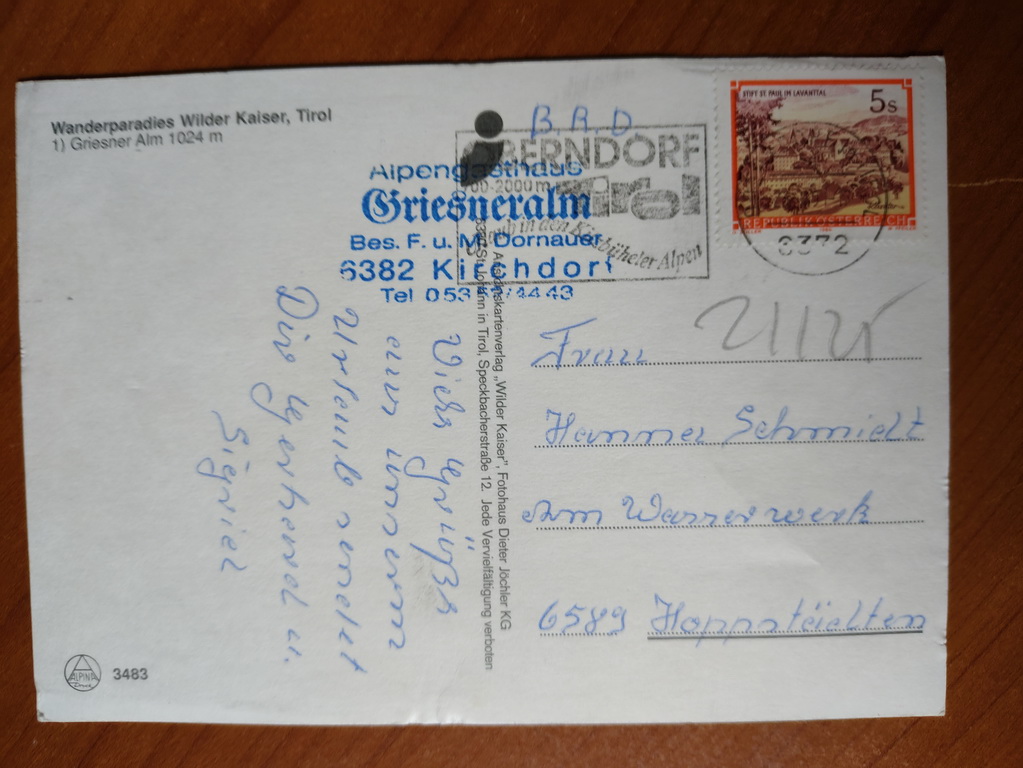 Wanderparadies Wilder Kaiser, Tirol
1) Griesner Alm 1024 m
B.R.D
OBERNDORF
700-2000 m
Tirol
in den Kitzbüheler Alpen
STIFT ST. PAUL IM LAVANTTAL
5s
REPUBLIK ÖSTERREICH
6372
Alpengasthaus
Griesneralm
Bes. F. u. M. Dornauer
6382 Kirchdorf
Tel 05352/4443
Viele Grüße
aus unserem
Urlaub sendet
Dir Gerhard u.
Sigrid
Ansichtskartenverlag „Wilder Kaiser", Fotohaus Dieter Jöchler KG
6380 St. Johann in Tirol, Speckbacherstraße 12. Jede Vervielfältigung verboten
Frau
Hanner Schmidt
Am Wasserwerk
6589 Hoppstädten
ALPINA
3483